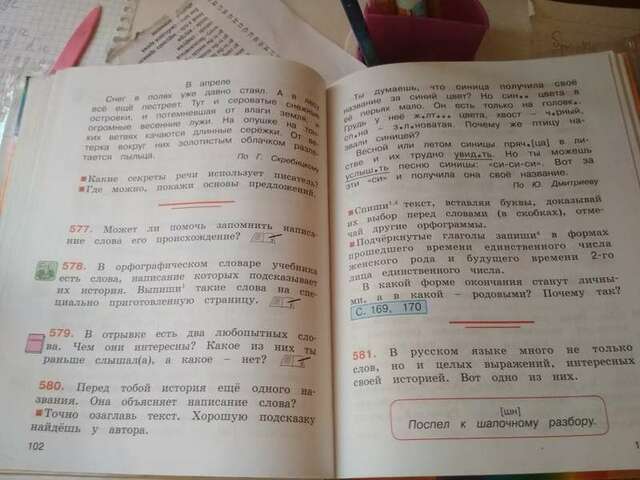 В апреле
Снег в полях уже давно стаял. А в лесу
всё ещё пестреет. Тут и сероватые снежные
островки, и потемневшая от влаги земля, и
огромные весенние лужи. На опушке на тон-
ких ветвях качаются длинные серёжки. От ве-
терка вокруг них золотистым облачком разле-
тается пыльца.
По Г. Скребицкому
Какие секреты речи использует писатель?
Где можно, покажи основы предложений.
577. Может ли помочь запомнить написа-
ние слова его происхождение?
578. В орфографическом словаре учебника
есть слова, написание которых подсказывает
их история. Выпиши такие слова на спе-
циально приготовленную страницу.
579. В отрывке есть два любопытных сло-
ва. Чем они интересны? Какое из них ты
раньше слышал(а), а какое – нет?
580. Перед тобой история ещё одного на-
звания. Она объясняет написание слова?
Точно озаглавь текст. Хорошую подсказку
найдёшь у автора.
102
Ты думаешь, что синица получила своё
название за синий цвет? Но син.. цвета в
её перьях мало. Он есть только на головк.
Грудь у неё ж.лт... цвета, хвост – ч.рный,
сп.на – з.л.новатая. Почему же птицу на-
звали синицей?
Весной или летом синицы пряч.[ца] в ли-
стве и их трудно увид.ть. Но ты можешь
услыш.ть песню синицы: «си-си-си». Вот за
эти «си» и получила она своё название.
По Ю. Дмитриеву
Спиши текст, вставляя буквы, доказывай
их выбор перед словами (в скобках), отме-
чай другие орфограммы.
Подчёркнутые глаголы запиши⁴ в формах
прошедшего времени единственного числа
женского рода и будущего времени 2-го
лица единственного числа.
В какой форме окончания станут личны-
ми, а в какой – родовыми? Почему так?
С. 169, 170
581. В русском языке много не только
слов, но и целых выражений, интересных
своей историей. Вот одно из них.
[шн]
Поспел к шапочному разбору.